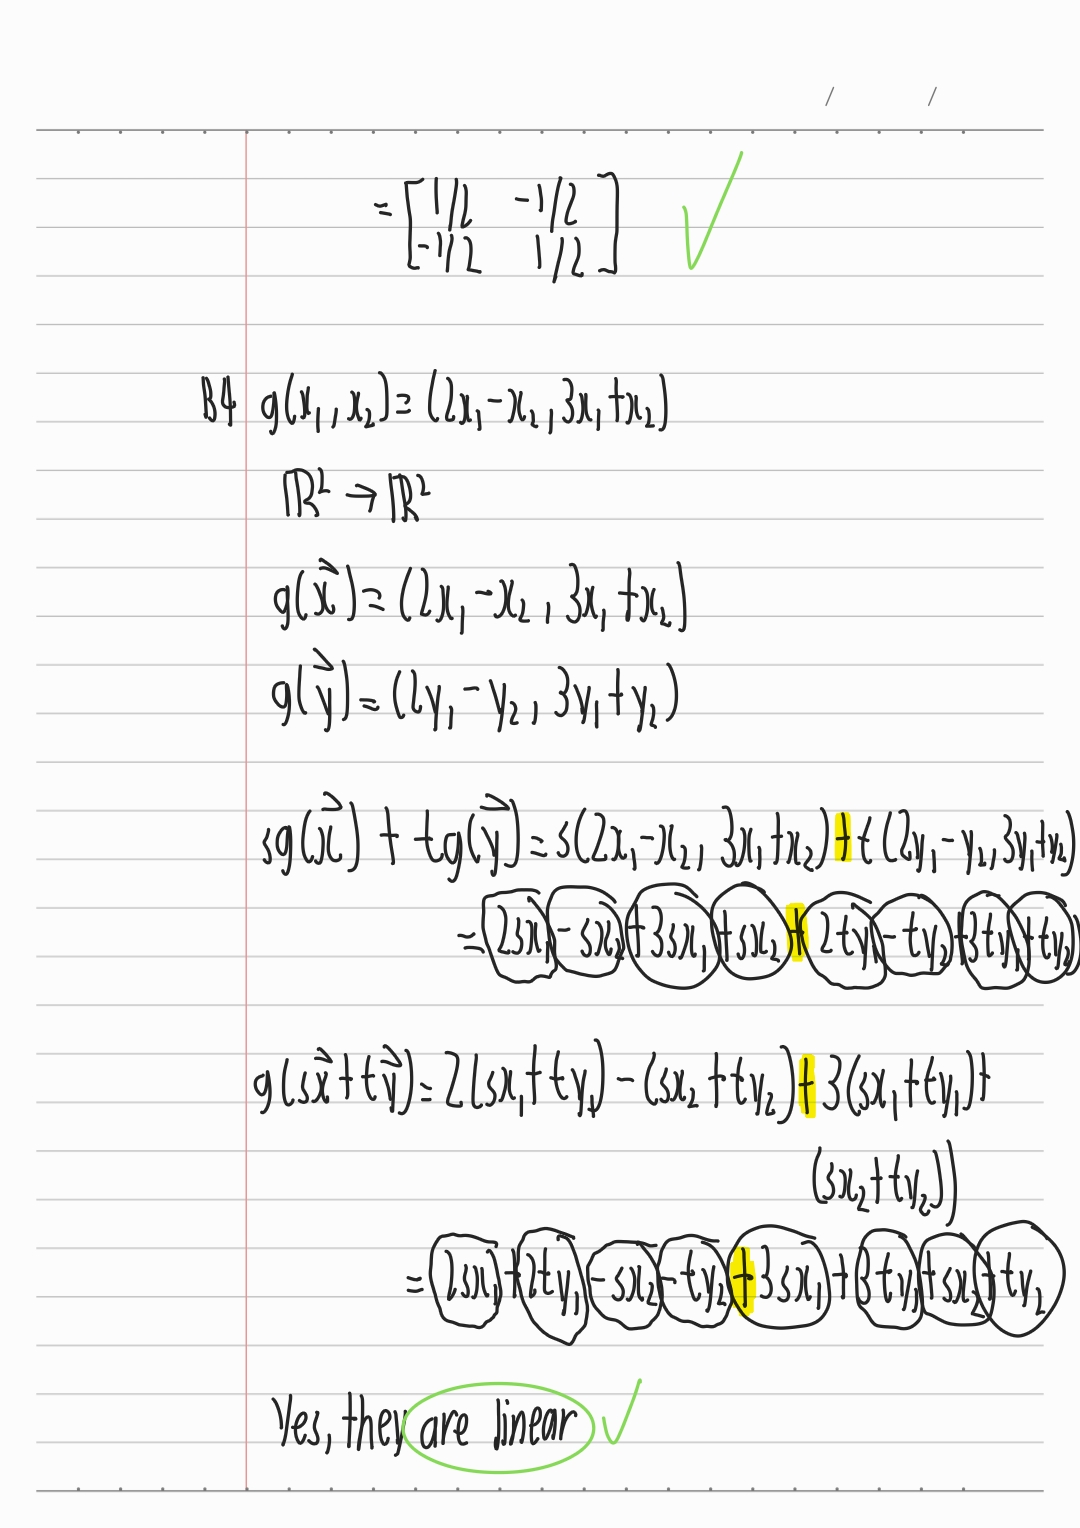 = [1/2 -1/2
-1/2 1/2]
B4 g(x₁, x₂) = (2x₁ - x₂, 3x₁ + x₂)
ℝ² → ℝ²
g(x⃗) = (2x₁ - x₂, 3x₁ + x₂)
g(y⃗) = (2y₁ - y₂, 3y₁ + y₂)
sg(x⃗) + tg(y⃗) = s(2x₁ - x₂, 3x₁ + x₂) + t(2y₁ - y₂, 3y₁ + y₂)
= 2sx₁ - sx₂ + 3sx₁ + sx₂ + 2ty₁ - ty₂ + 3ty₁ + ty₂)
g(sx⃗ + ty⃗) = 2(sx₁ + ty₁) - (sx₂ + ty₂) + 3(sx₁ + ty₁) +
(sx₂ + ty₂))
= 2sx₁ + 2ty₁ - sx₂ - ty₂ + 3sx₁ + 3ty₁ + sx₂ + ty₂
Yes, they are linear